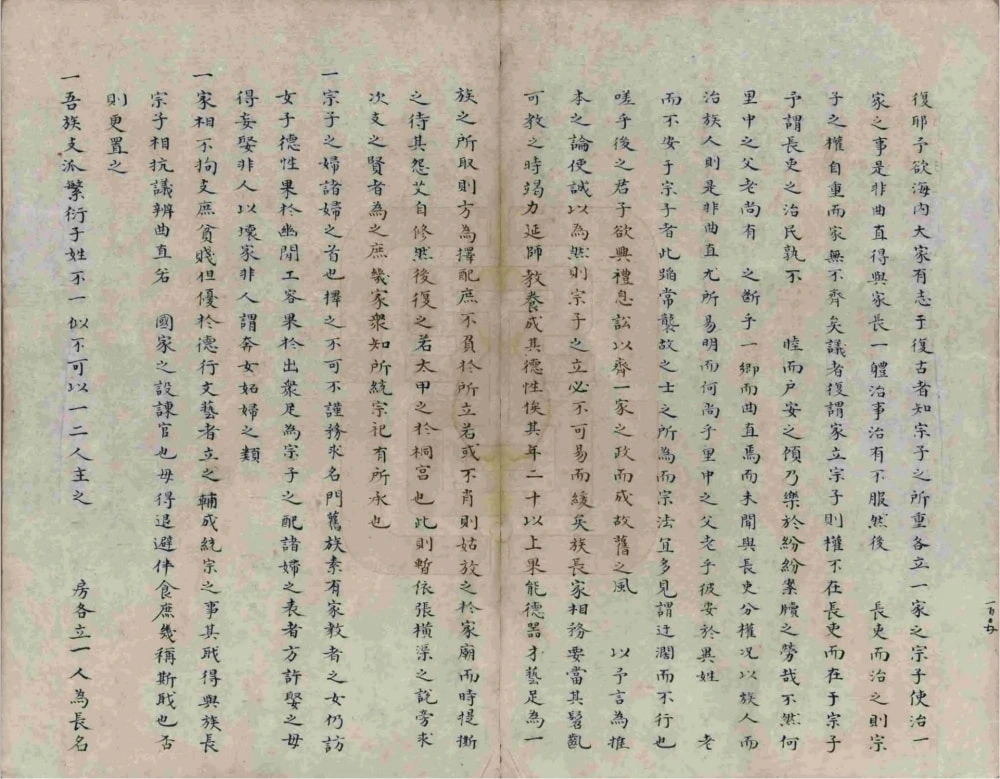 復耶予欲海内大家有志于復古者知宗子之所重各立一家之宗子使治一
家之事是非曲直得與家長一體治事治有不服然後 長吏而治之則宗
子之權自重而家無不齊矣議者復謂家立宗子則權不在長吏而在于宗子
予謂長吏之治民孰不 睦而戶安之顧乃樂於紛紛案牘之勞哉不然何
里中之父老尚有 之斷乎一鄉而曲直焉而未聞與長吏分權况以族人而
治族人則是非曲直尤所易明而何尚乎里中之父老乎彼安於異姓 老
而不安于宗子者此蹈常襲故之士之所為而宗法宜多見謂迂濶而不行也
嗟乎後之君子欲興禮息訟以齊一家之政而成故舊之風 以予言為推
本之論便誠以為然則宗子之立必不可易而緩矣族長家相務要當其髫齓
可教之時竭力延師教養成其德性俟其年二十以上果能德器才藝足為一
族之所取則方為擇配庶不負於所立若或不肖則姑放之於家廟而時提撕
之待其怨艾自修然後復之若太甲之於桐宮也此則暫依張橫渠之說旁求
次支之賢者為之庶幾家衆知所統宗祀有所承也
一宗子之婦諸婦之首也擇之不可不謹務求名門舊族素有家教者之女仍訪
女子德性果於幽閒工容果於出衆足為宗子之配諸婦之表者方許娶之毋
得妄娶非人以壞家非人謂奔女妬婦之類
一家相不拘支庶貧賤但優於德行文藝者立之輔成統宗之事其戝得與族長
宗子相抗議辨曲直若 國家之設諌官也毋得退避伴食庶幾稱斯戝也否
則更置之
一吾族支派繁衍子姓不一似不可以一二人主之 房各立一人為長名